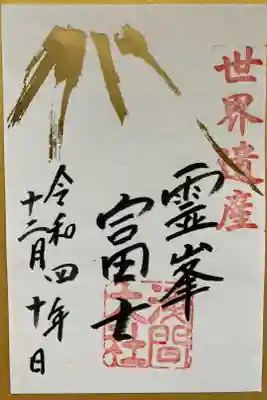 世界遺産
霊峯
富士
浅間大社
令和四年
十二月十日